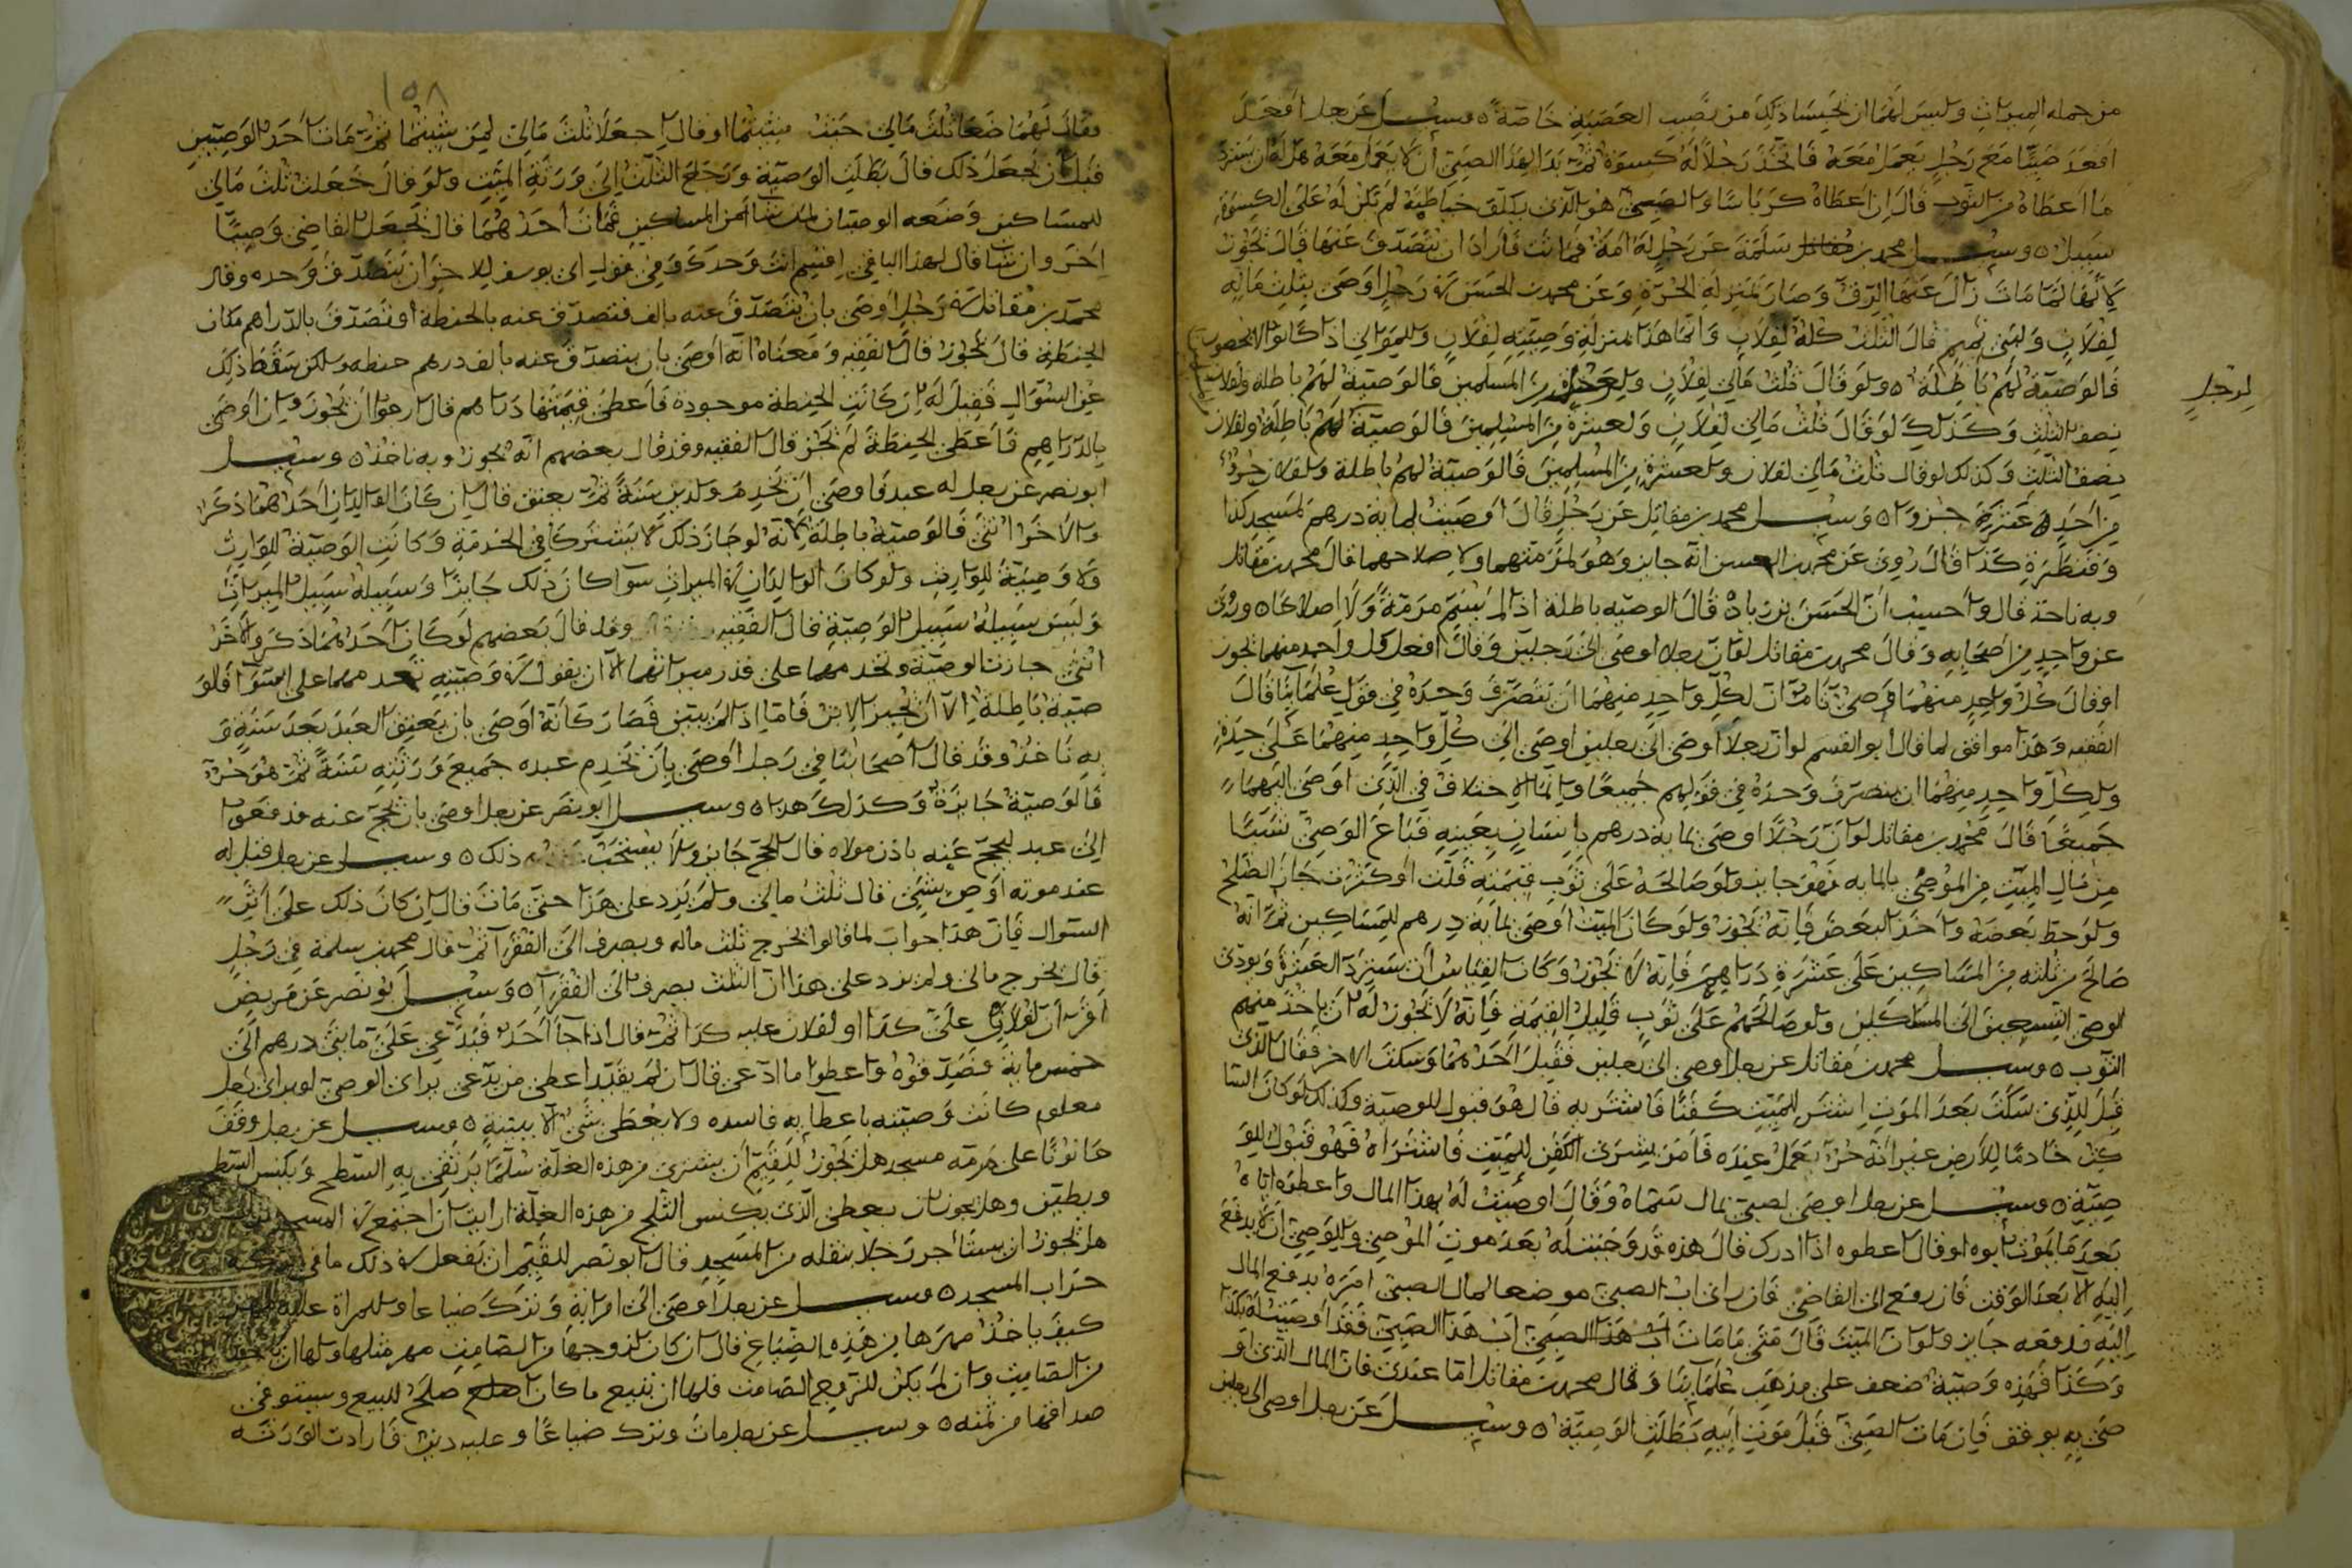 من جملة الميراث وليس لهما ان يحبسا ذلك من نصيب العصبة خاصة ٥ وسيل عن رجل
اقعد صبيا مع رجل يعمل معه فاتخذ رجلا له كسوة ثم بدا لهذا الصبي ان لا يعمل معه هل له ان يسترد
ما اعطاه من الثوب قال ان اعطاه كرباسا والصبي هو الذي خياطته لم تكن له على الكسوة
سبيل ٥ وسيل محمد بن سلمة عن رجل له امة فماتت فاراد ان يتصدق عنها قال يجوز
لانها لما ماتت زال عنها الرق وصار بمنزلة الحرة وعن محمد بن الحسن في رجل اوصى بثلث ماله
لفلان ولبني تميم قال الثلث كله لفلان وانما هذا بمنزلة وصيته لفلان وللموالي اذا كانوا لا يحصون
فالوصية لهم باطلة ٥ ولو قال ثلث مالي لفلان من المسلمين فالوصية لهم باطلة ولفلان
لرجل
نصف الثلث وكذلك لو قال ثلث مالي لفلان ولعشرة من المسلمين فالوصية لهم باطلة ولفلان
نصف الثلث وكذلك لو قال ثلث مالي لفلان ولعشرة من المسلمين فالوصية لهم باطلة ولفلان جزؤ
من احد عشر جزوا ٥ وسيل محمد بن مقاتل عن رجل قال اوصيت بماية درهم لمسجد كذا
وقنطرة كذا قال روي عن محمد بن الحسن انه جايز وهو لمرمتهما ولاصلاحهما قال محمد بن مقاتل
وبه ناخذ قال واحسب ان الحسن بن زياد قال الوصية باطلة اذا لم يسم مرمة ولا اصلاحا ٥ وروى
عن واحد من اصحابه وقال محمد بن مقاتل لو ان رجلا اوصى الى رجلين وقال افعل كل واحد منهما يجوز
او قال كل واحد منهما وصي تام ان لكل واحد منهما ان يتصرف وحده في قول علماينا قال
الفقيه وهذا موافق لما قال ابو القسم لو ان رجلا اوصى الى رجلين اوصى الى كل واحد منهما على حدة
ولكل واحد منهما ان يتصرف وحده في قولهم جميعا وانما الاختلاف في الذي اوصى اليهما
جميعا قال محمد بن مقاتل لو ان رجلا اوصى بماية درهم بانسان بعينه فباع الوصي شيا
من مال الميت من الموصى بالماية فهو جايز ولو صالحه على ثوب قيمته قلت او كثرت جاز الصلح
ولو حط بعضه واخذ البعض فانه يجوز ولو كان الميت اوصى بماية درهم للمساكين ثم انه
صالح من ثلثه من المساكين على عشرة دراهم فانه لا يجوز وكان القياس ان يسترد العشرة ويودي
الوصي التسعين الى المساكين ولو صالحهم على ثوب قليل القيمة فانه لا يجوز له ان ياخذ منهم
الثوب ٥ وسيل محمد بن مقاتل عن رجل اوصى الى رجلين فقبل احدهما وسكت الاخر فقال الذي
قبل للذي سكت بعد الموت اشتر للميت كفنا فاشتر به قال هو قبول للوصية وكذلك لو كان السا
كت خادما للارض غير انه حر يعمل عنده فامر بشرى الكفن للميت فاشتراه فهو قبول للو
صية ٥ وسيل عن رجل اوصى لصبي بمال سماه وقال اوصيت له بهذا المال واعطوه اياه
بعد ما يموت ابوه او قال اعطوه اذا ادرك قال هذه قد وجبت له بعد موت الموصي وللوصي ان لا يدفع
اليه الا بعد الوقت فان رفع الى القاضي فان راى اب الصبي موضعا لمال الصبي امره بدفع المال
اليه فدفعه جايز ولو ان الميت قال متى ما مات اب هذا الصبي فقد اوصيت له بكذا
وكذا فهذه وصية ضعف على مذهب علماينا وقال محمد بن مقاتل اما عندي فان المال الذي او
صى به يوقف فان مات الصبي قبل موت ابيه بطلت الوصية ٥ وسيل عن رجل اوصى الى رجلين
١٥٨
فقال لهما ضعا ثلث مالي حيث شيتما او قال اجعلا ثلث مالي لمن شيتما ثم مات احد الوصيين
قبل ان يجعل ذلك قال بطلت الوصية ورجع الثلث الى ورثة الميت ولو قال جعلت ثلث مالي
للمساكين وضعه الوصيان لمن شاا من المساكين فمات احدهما قال يجعل القاضي وصيا
اخر وان شا قال لهذا الباقي اقسم انت وحدك وفي قول ابي يوسف للاخر ان يتصدق وحده وقال
محمد بن مقاتل في رجل اوصى بان يتصدق عنه بالف فتصدق عنه بالحنطة او تصدق بالدراهم مكان
الحنطة قال يجوز قال الفقيه ومعناه انه اوصى بان يتصدق عنه بالف درهم حنطة ولكن سقط ذلك
عن السؤال فقيل له ان كانت الحنطة موجودة فاعطى قيمتها دراهم قال ارجوا ان يجوز وان اوصى
بالدراهم فاعطى الحنطة لم يجز قال الفقيه وقد قال بعضهم انه يجوز وبه ناخذ ٥ وسيل
ابو نصر عن رجل له عبد فاوصى ان يخدم ولديه سنة ثم يعتق قال ان كان الولدان احدهما ذكرا
والاخر انثى فالوصية باطلة لانه لو جاز ذلك لا يشتركا في الخدمة وكانت الوصية للوارث
ولا وصية للوارث ولو كان الوالدان في الميراث سوا كان ذلك جايزا وسبيله سبيل الميراث
وليس سبيله سبيل الوصية قال الفقيه وقد قال بعضهم لو كان احدهما ذكر والاخر
انثى جازت الوصية وتخدمهما على قدر ميراثهما الا ان يقول في وصيته تخدمهما على السوا فالو
صية باطلة الا ان يجيز الابن فاما اذا لم يبين فصار كانه اوصى بان يعتق العبد بعد سنة و
به ناخذ وقد قال اصحابنا في رجل اوصى بان يخدم عبده جميع ورثته سنة ثم هو حر
فالوصية جايزة وكذلك هذا ٥ وسيل ابو نصر عن رجل اوصى بان يحج عنه فدفعوا
الى عبد ليحج عنه باذن مولاه قال الحج جايز ولا يستحب ذلك ٥ وسيل عن رجل قيل له
عند موته اوص بشيء قال ثلث مالي ولم يزد على هذا حتى مات قال ان كان ذلك على اثر
السوال فان هذا جواب لما قالوا يخرج ثلث ماله ويصرف الى الفقرا ثم قال محمد بن سلمة في رجل
قال يخرج مالي ولم يزد على هذا ان الثلث يصرف الى الفقرا ٥ وسيل ابو نصر عن مريض
اقر ان لفلان علي كذا او لفلان عليه كذا ثم قال اذا جا احد فيدعي علي ما بيني درهم الى
خمس ماية فصدقوه واعطوا ما ادعى قال ان لم يقيد اعطى من يدعي براى الوصي او براى رجل
معلوم كانت وصيته باعطايه فاسده ولا يعطى شي الا ببينة ٥ وسيل عن رجل وقف
حانوتا على مرمة مسجد هل يجوز للقيم ان يشتري من هذه الغلة سلما يرتقي به السطح ويكنس السطح
ويطين وهل يجوز ان يعطى الذي يكنس الثلج من هذه الغلة ارايت ان اجتمع في المسجد
هل يجوز ان يستاجر رجلا ينقله من المسجد قال ابو نصر للقيم ان يفعل في ذلك ما في
خراب المسجد ٥ وسيل عن رجل اوصى الى امراته وترك ضياعا وللمراة عليه المهر
كيف ياخذ مهرها من هذه الضياع قال ان كان لزوجها من الصامت مهر مثلها ولها ان
من الصامت وان لم يكن للزوج الصامت فلها ان تبيع ما كان اصلح للبيع ويستوفى
صداقها من ثمنه ٥ وسيل عن رجل مات وترك ضياعا وعليه دين فارادت الورثة